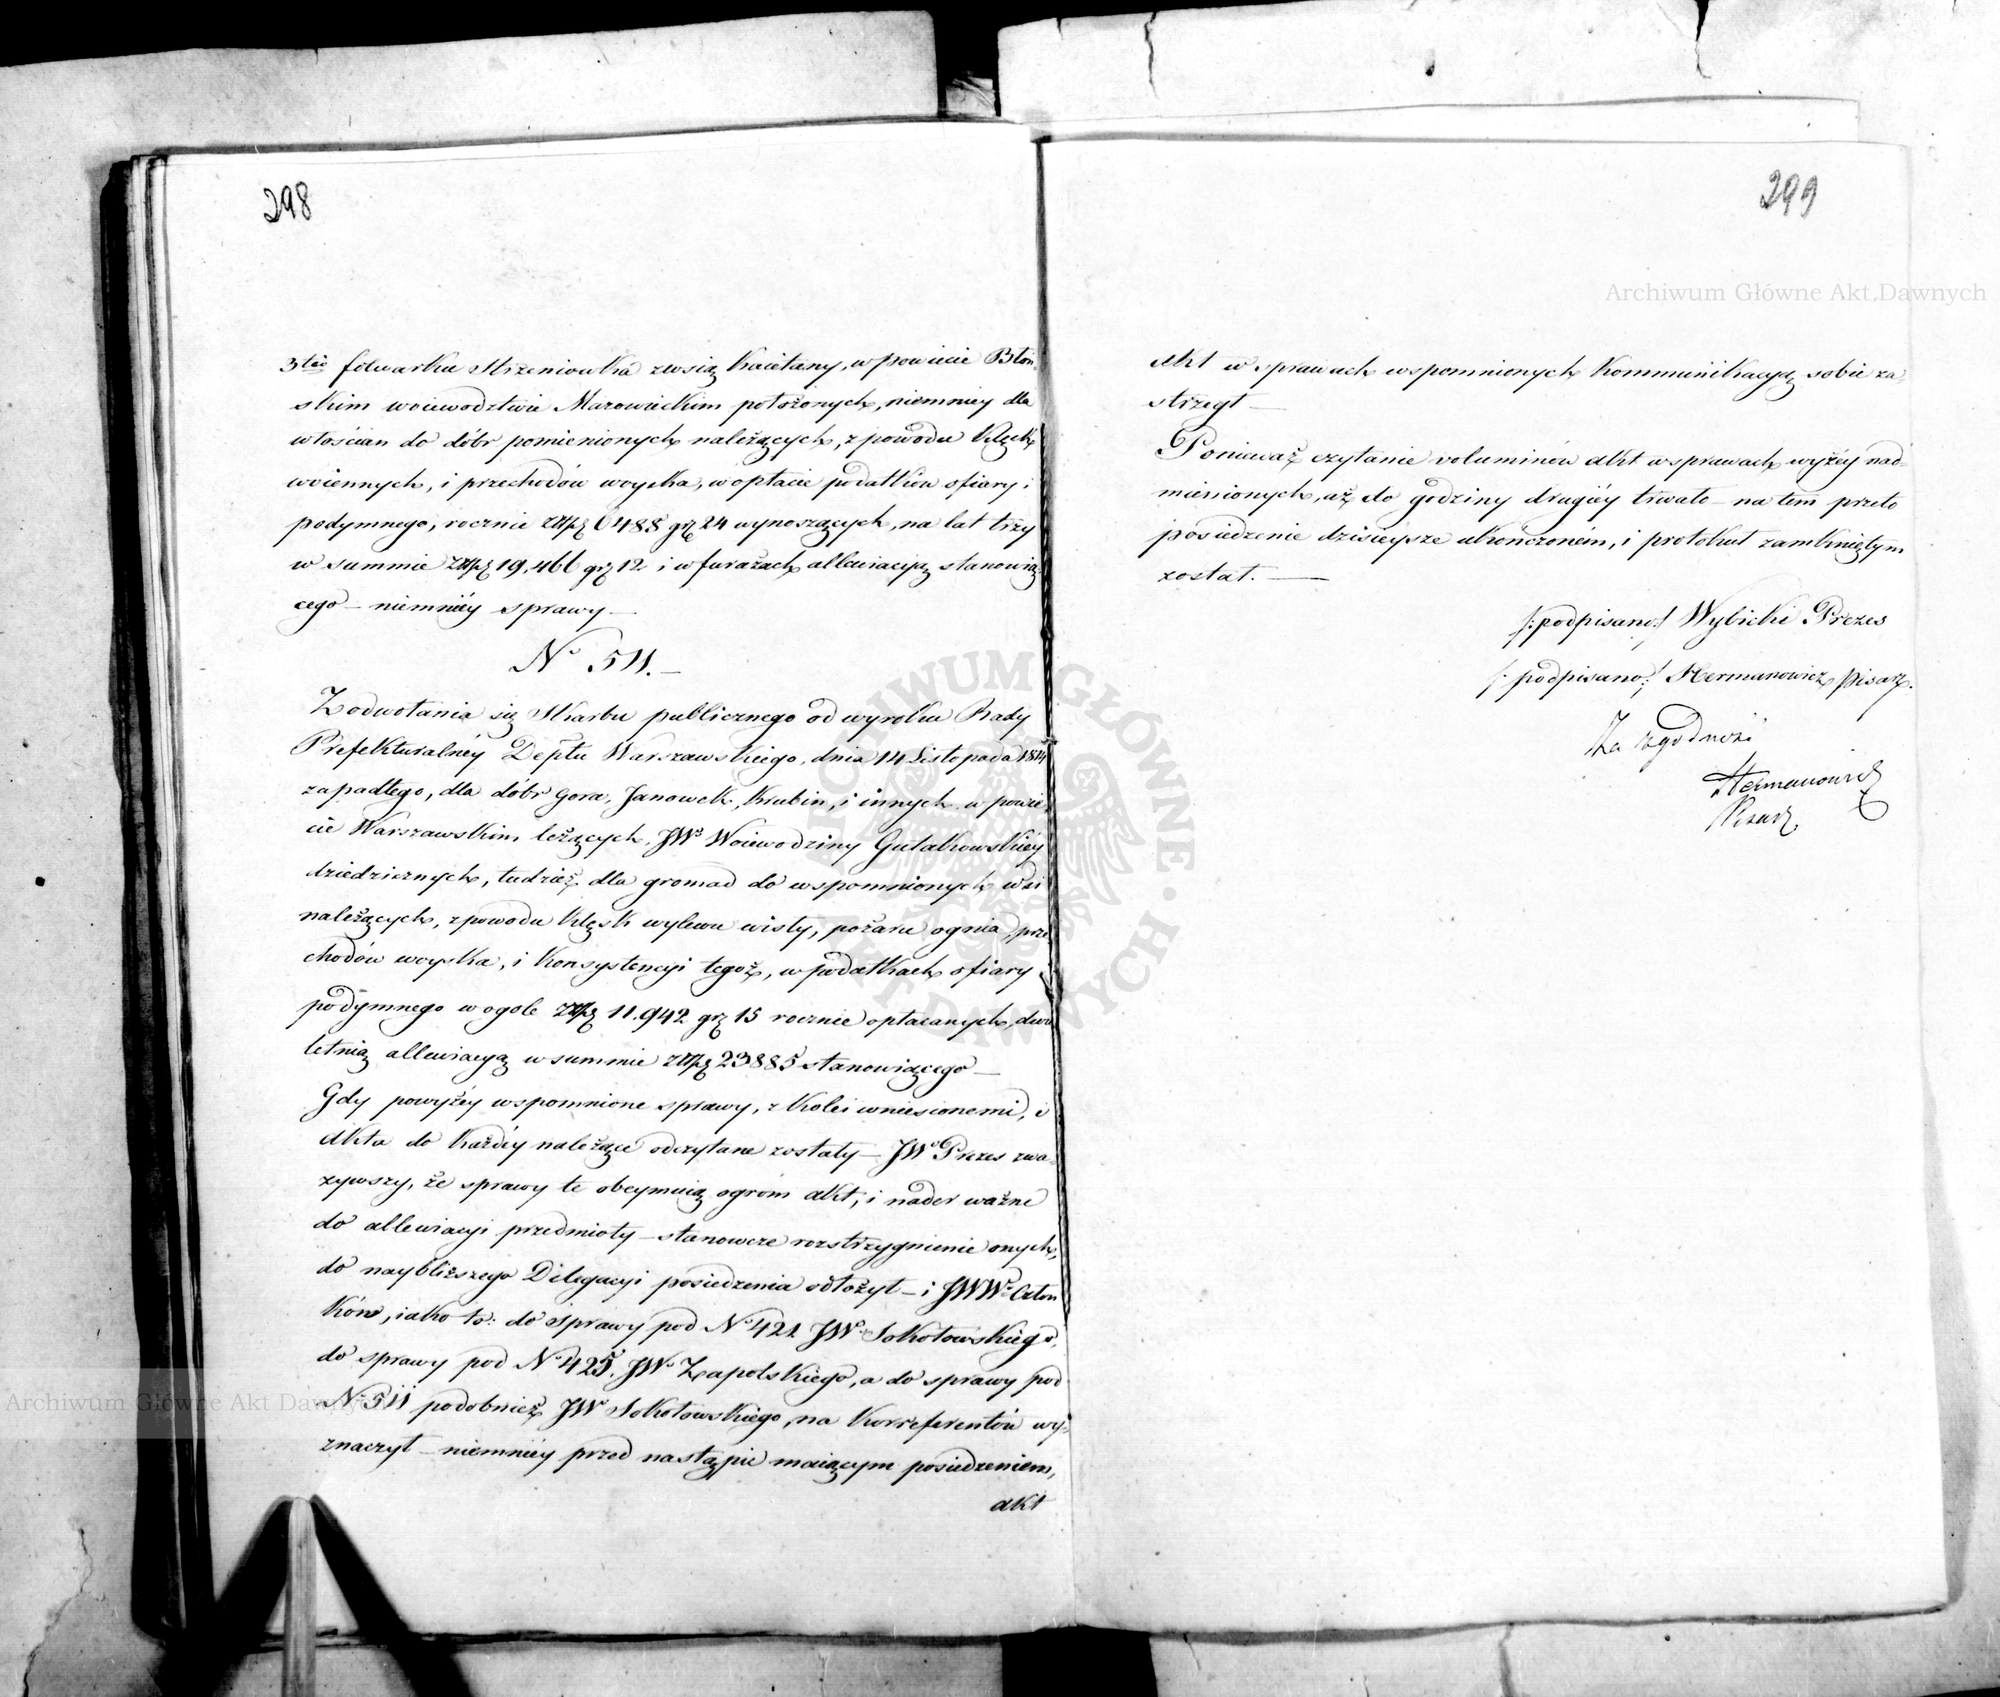 298
3tio folwarku Strzeniowka zwsią Kaietany, w powiecie Błoń,
skim woiewodztwie Mazowieckim położonych, niemniey dla
włościan do dóbr pomienionych należących, z powodu klęsk
woiennych, i przechodów woyska, w opłacie podatków ofiary i
podymnego, rocznie złp 6488 gr 24 wynoszących, na lat trzy
w summie złp 19,466 gr 12 i w furażach allewiacyą stanowią,
cego – niemniéy sprawy –
No 511. –
Z odwołania się Skarbu publicznego od wyroku Rady
Prefekturalnéy Deptu Warszawskiego, dnia 14 Listopada 1814
zapadłego, dla dóbr Gora, Janowek, Krubin, i innych w powie,
cie Warszawskim leżących, JW Woiewodziny Gutakowskiéy
dziedzicznych, tudzież dla gromad do wspomnionych wsi
należących, z powodu klęsk wylewu wisły, pożaru ognia, prze
chodów woyska, i konsystencyi tegoż, w podatkach ofiary i
podymnego w ogole złp 11.942 gr 15 rocznie opłacanych, dwu
letnią allewiacyą w summie złp 23885 stanowiącego –
Gdy powyżéy wspomnione sprawy, z kolei wniesionemi, i
akta do każdéy należące odczytane zostały – JW Prezes zwa,
żywszy, że sprawy te obeymuią ogrom akt, i nader ważne
do allewiacyi przedmioty – stanowcze rozstrzygnienie onych,
do naybliższego Delegacyi posiedzenia odłożył – i JWW Człon
ków, iako to: do sprawy pod No 421 JW Sokołowskiego,
do sprawy pod No 425. JW Zapolskiego, a do sprawy pod
No 511 podobnież JW Sokołowskiego, na korreferentów wy,
znaczył – niemniéy przed nastąpić maiącym posiedzeniem,
akt
299
Akt w sprawach wspomnionych kommunikacyą sobie za,
strzegł –
Ponieważ czytanie voluminów akt w sprawach wyżéy nad,
mienionych, aż do godziny drugiéy trwało – na tem przeto
posiedzenie dzisieysze ukończonem, i protokuł zamkniętym
został. –
/:podpisano:/ Wybicki Prezes
/:podpisano:/ Hermanowicz Pisarz.
Za zgodność
Hermanowicz
Pisarz
Archiwum Główne Akt Dawnych
Archiwum Główne Akt Dawnych
ARCHIWUM GŁÓWNE AKT DAWNYCH